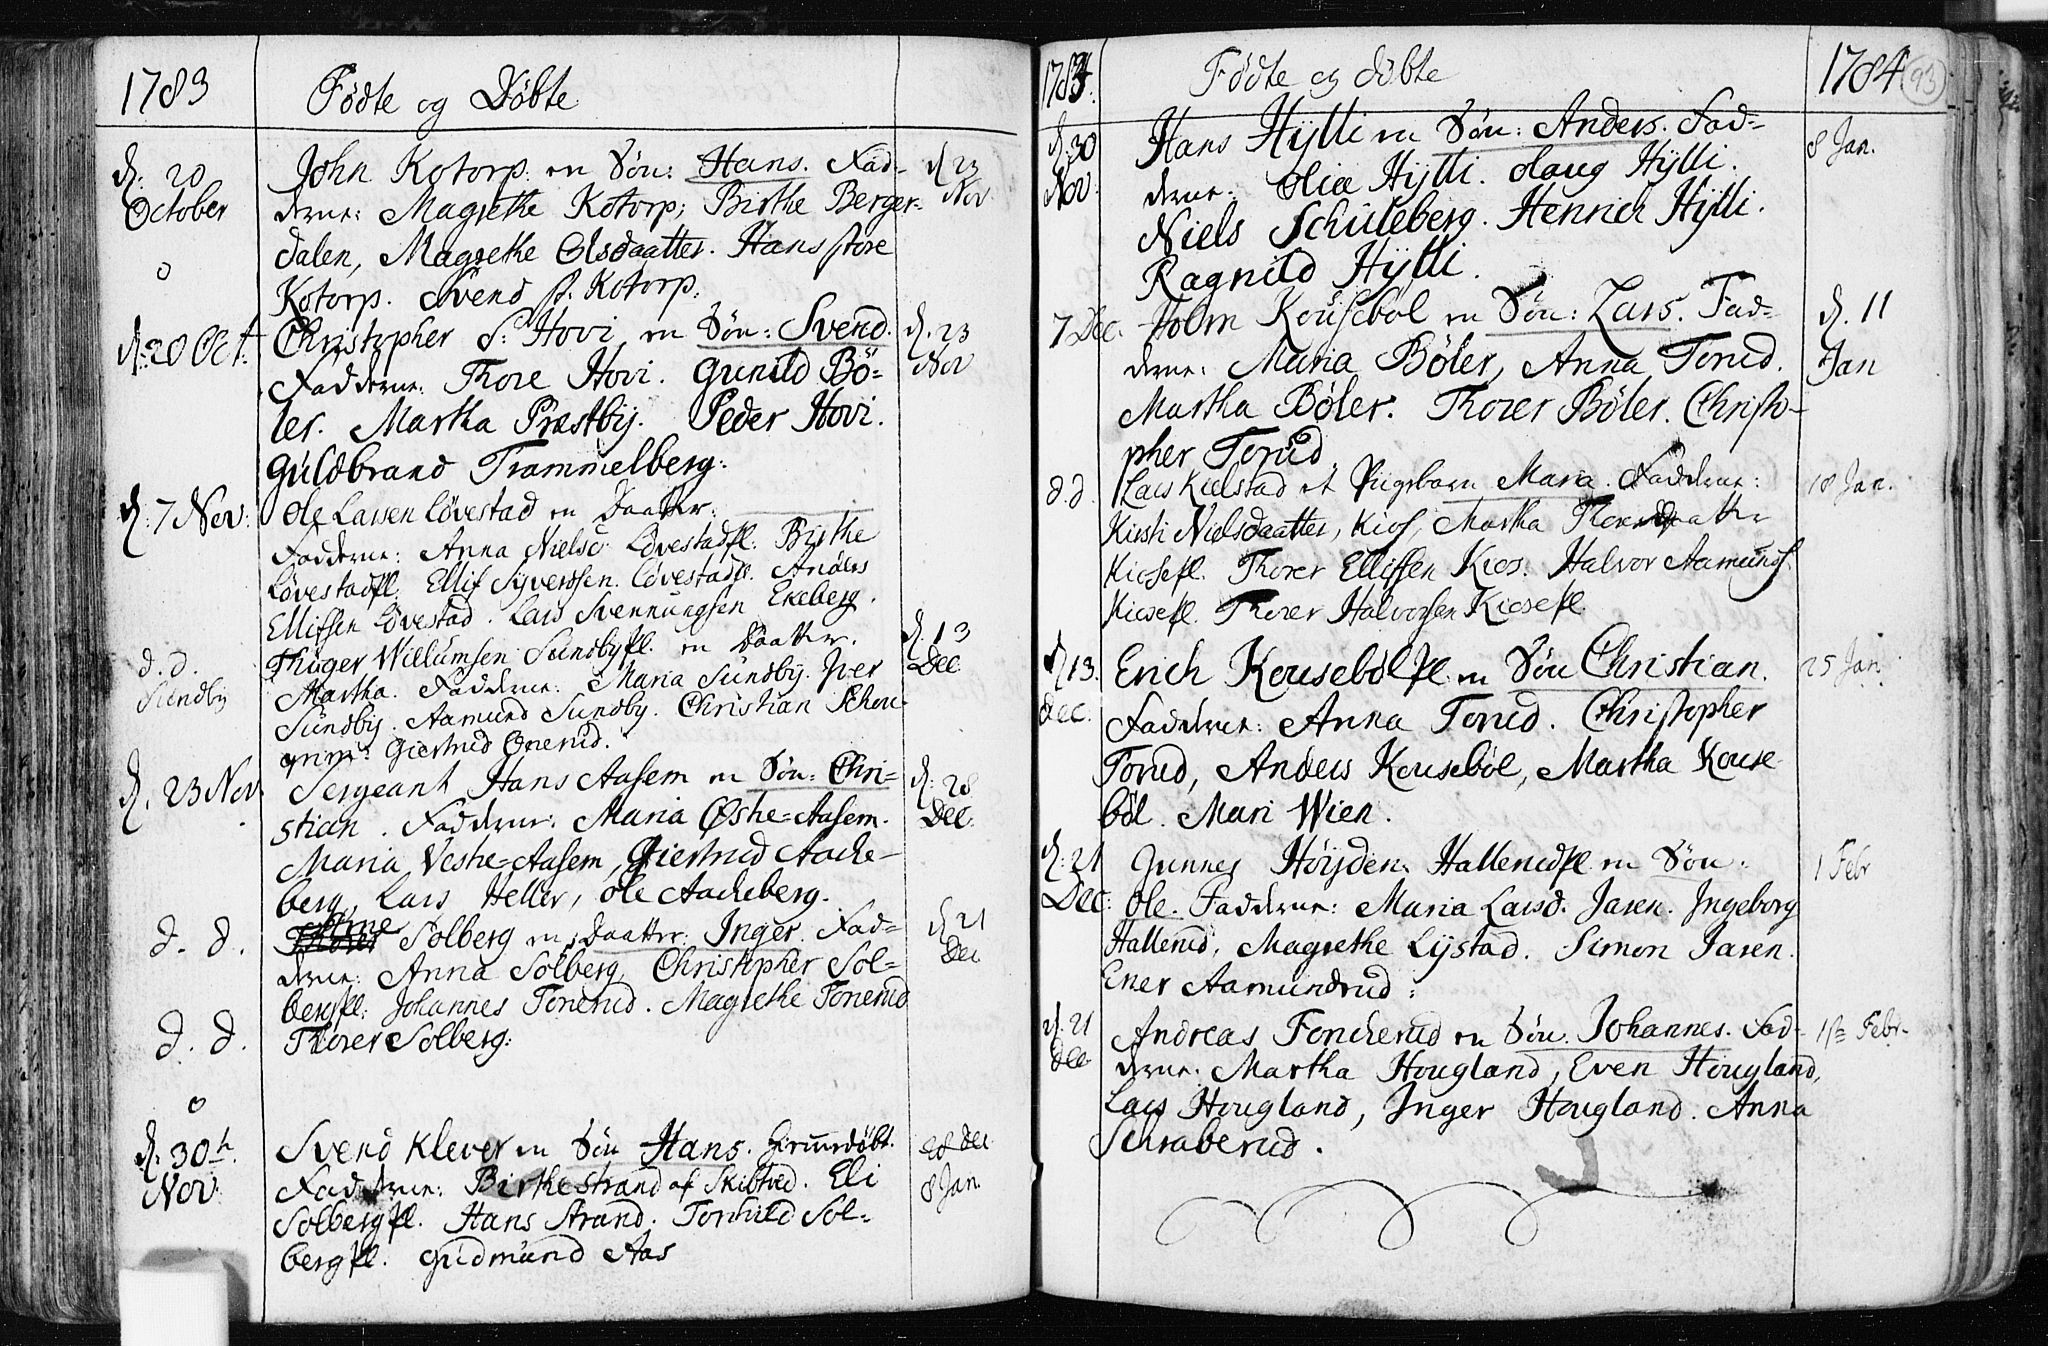 1783
Födte og Döbte
d. 20 October
John Kotorp en Sön: Hans. Fad=
derne: Magrethe Kotorp; Birthe Berger=
dalen, Magrethe Olsdaatter. Hans store
Kotorp. Svend p. Kotorp.
d. 23 Nov
d. 20 Oct.
Christopher S: Hovi en Sön: Svend.
Fadderne: Thore Hovi. Gunild Bö=
ler. Martha Præstbÿ. Peder Hovi.
Guldbrand Trammelberg:
d. 23 Nov
d: 7 Nov:
Ole Larsen Lövestad en Daatter:
Fadderne: Anna Nielsd: Lövestadpl. Birthe
Lövestadpl. Ellif Syversen. Lövestadpl. Anders
Ellifsen Lövestad. Lars Svennungsen Ekeberg.
d. d. Sundby
Thrüger Willumsen Sundbypl. en Daatter.
Martha. Fadderne: Maria Sundbÿ. Iver
Sundbÿ. Aamund Sundby. Christian Schou=
grim: Giertrud Onerud.
d. 13 Dec.
d. 23 Nov
Sergeant Hans Aasem en Sön: Chri=
stian. Fadderne: Maria Östre=Aasem.
Maria Vestre=Aasem, Giertrud Aache=
berg, Lars Heller, Ole Aacheberg.
d. 28 Dec.
d. d.
Arne Solberg en Daatter: Inger. Fad=
derne: Anna Solberg, Christopher Sol=
bergpl: Johannes Tonerud. Magrethe Tonerud
Thorer Solberg:
d. 21 Dec
d. d.
d. 30th Nov
Svend Klever en Sön Hans. Hiemmedöbt.
Fadderne: Birthe Strand af Skibtved. Eli
Solberg pl. Hans Strand. Tornild Sol=
bergpl. Gudmund Aas
28 Dec
8 Jan.
1783
Födte og döbte
1784
93
d. 30 Nov.
Hans Hÿlli en Sön: Anders. Fad=
derne: Olia Hÿlli. Olaug Hÿlli.
Niels Schuleberg. Henrich Hÿlli.
Ragnild Hÿlli.
8 Jan.
7 Dec.
Holm Kouseböl en Sön: Lars. Fad=
derne: Maria Böler, Anna Torud.
Martha Böler. Thorer Böler. Christo=
pher Torud
d. 11 Jan
d. d.
Lars Kielstad et Pigebarn Maria. Fadderne:
Kirsti Nielsdaatter, Kios, Martha Thoresdaatter
Kiosepl. Thorer Ellifsen Kios. Halvor Aamunds.
Kiosepl. Thorer Halvorsen Kiosepl.
18 Jan.
d. 13. Dec.
Erich Kousebölpl. en Sön Christian.
Fadderne: Anna Torud. Christopher
Torud, Anders Kouseböl, Martha Kouse
böl. Mari Wien.
25 Jan
d. 21 Dec:
Gunner Höÿden. Hallerudpl. en Sön:
Ole. Fadderne: Maria Larsd. Jaren. Ingeborg
Hallerud. Magrethe Lÿstad. Simon Jaren.
Ener Aamundrud:
1 Febr
d. 21 Dec
Andreas Foncherud en Sön. Johannes. Fad=
derne: Martha Hougland, Even Hougland,
Lars Hougland, Inger Hougland. Anna
Schraberud.
1ste Febr.